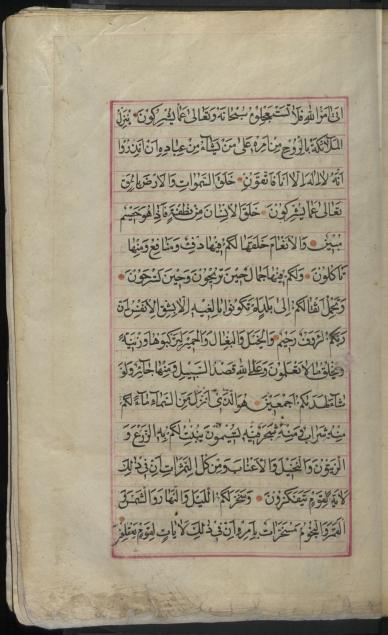 اتى امر الله فلا تستعجلوه سبحانه وتعالى عما يشركون ينزل
الملائكة بالروح من امره على من يشاء من عباده ان انذروا
انه لا اله الا انا فاتقون خلق السموات والارض بالحق
تعالى عما يشركون خلق الانسان من نطفة فاذا هو خصيم
مبين والانعام خلقها لكم فيها دفء ومنافع ومنها
تاكلون ولكم فيها جمال حين تريحون وحين تسرحون
وتحمل اثقالكم الى بلد لم تكونوا بالغيه الا بشق الانفس ان
ربكم لرؤف رحيم والخيل والبغال والحمير لتركبوها وزينة
ويخلق ما لا تعلمون وعلى الله قصد السبيل ومنها جائر ولو
شاء لهديكم اجمعين هو الذي انزل من السماء ماء لكم
منه شراب ومنه شجر فيه تسيمون ينبت لكم به الزرع و
الزيتون والنخيل والاعناب ومن كل الثمرات ان في ذلك
لاية لقوم يتفكرون وسخر لكم الليل والنهار والشمس
والقمر والنجوم مسخرات بامره ان في ذلك لايات لقوم يعقلون